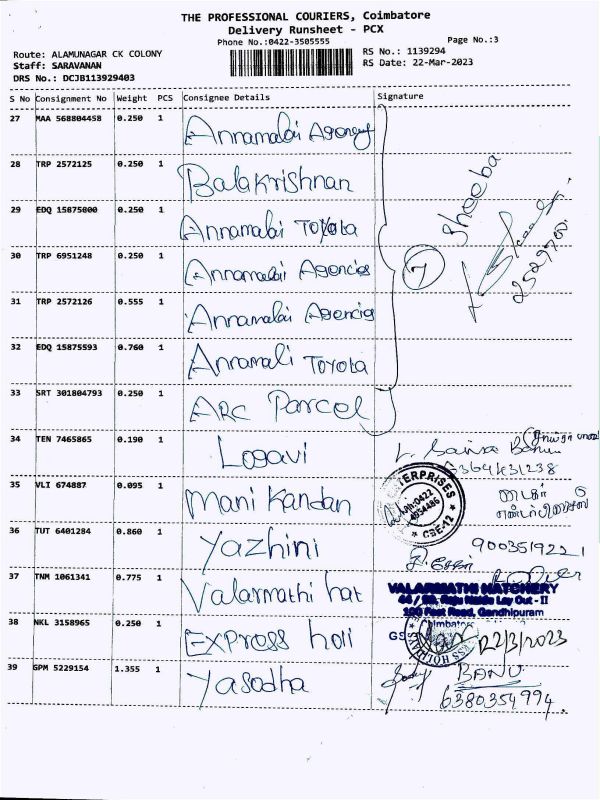 THE PROFESSIONAL COURIERS, Coimbatore
Delivery Runsheet - PCX
Phone No.:0422-3505555
Page No.:3
Route: ALAMUNAGAR CK COLONY
RS No.: 1139294
Staff: SARAVANAN
RS Date: 22-Mar-2023
DRS No.: DCJB113929403
S No Consignment No Weight PCS Consignee Details Signature
27 MAA 568804458 0.250 1 Annamalai Agency
28 TRP 2572125 0.250 1 Balakrishnan
Sheeba
29 EDQ 15875800 0.250 1 Annamalai Toyota
30 TRP 6951248 0.250 1 Annamalai Agencies
7
31 TRP 2572126 0.555 1 Annamalai Agencies
32 EDQ 15875593 0.760 1 Annamali Toyota
33 SRT 301804793 0.250 1 ARC Parcel
34 TEN 7465865 0.190 1 Logavi
35 VLI 674887 0.095 1 Mani Kandan
ENTERPRISES
CBE-12
36 TUT 6401284 0.860 1 Yazhini
9003519221
37 TNM 1061341 0.775 1 Valarmathi hat
VALARMATHI HATCHERY
100 Feet Road, Gandhipuram
Coimbatore
38 NKL 3158965 0.250 1 Express holi
22/3/2023
39 GPM 5229154 1.355 1 Yasodha
BANU
6380354994